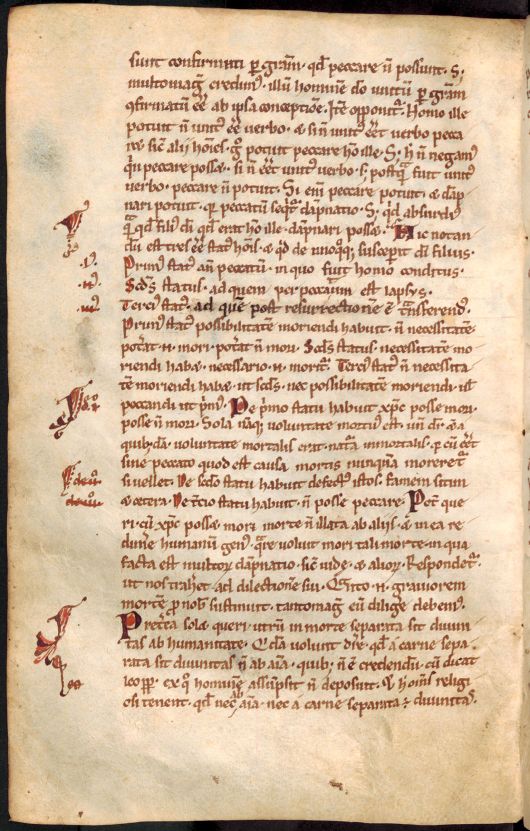 sunt confirmati p̄ gr̄am. qd̄ peccare n̄ possunt. S;
multomag̃ credim᷒. illū hominē dō unitū p̄ gr̄am
ꝯfirmatū eē ab ipsa conceptiōe. Itē opponit᷑. Homo ille
potuit n̄ unir̄ eē verbo. ⁊ si n̄ unit᷒ eēt verbo pecca
re sic̄ alii hoīes. potuit peccare hō ille. S; h̄ n̄ negam᷒
q̄n peccare possæ. si n̄ eēt unit᷒ verbo. s; postq̄ fuit unit᷒
verbo. peccare n̄ potuit. Si enī peccare potuit. ⁊ dāp
nari potuit. q̄ peccatū seqt᷑ dāpnatio. S; qd̄ absurdi᷒
q̄ qd̄ fili᷒ dī qd̄ erat hō ille. dāpnari possæ. Hic notan
dū est tres eē stat᷒ hōis. ⁊ qd̄ de unoq̄q; suscepit dī filius.
Prim᷒ stat᷒ an̄ peccatū. in quo fuit homo conditus.
Scd̄s status. ad quem per peccatum est lapsus.
Terci᷒ stat᷒. ad quē post resurrectionē ē trāsferend᷒.
Prim᷒ stat᷒ possibilitatē moriendi habuit. n̄ necessitatē.
pot᷑at .n. mori. pot᷑at n̄ mori. Scd̄s status. necessitatē mo
riendi habæ. necessario .n. morit᷑. Terci᷒ stat᷒ n̄ necessita
tē moriendi habæ. ut scd̄s. nec possibilitatē moriendi. ul̄
peccandi ut prim᷒. De p̄mo statu habuit xp̄c posse mori.
posse n̄ mori. Sola nāq; voluntate mortu᷒ est. un̄
quib;dā. voluntate mortalis erat. natura inmortalis. q̄ cū eēt
sine peccato quod est causa mortis. nunquā moreret᷑
si vellet. De scd̄o statu habuit defect᷒ istos. famem sitim
⁊ cetera. De t᷑cio statu habuit. n̄ posse peccare. Pot̄ que
ri. cū xp̄c possæ mori morte n̄ illata ab aliis. ⁊ in ea re
dim᷑e humanū gen᷒. quare voluit mori tali morte. in qua
facta est multor̄ dāpnatio. sic̄ iude. ⁊ alior̄. Respondet᷑.
ut nos trahet ad dilectionē sui. Q̄nto .n. graviorem
mortē p nob̄ sustinuit. tantomag̃ eū dilige debem᷒.
Pret᷑ea solæ queri. utrū in morte separata sit divini
tas ab humanitate. Qd̄a volunt dīr̄. qd̄ a carne sepa
rata sit divinitas n̄ ab aīa. quib; n̄ ē credendū. cū dicat
leo pp̄. ex quo hominē assūpsit n̄ deposuit. hoīes religi
osi tenent. qd̄ nec ab aīa. nec a carne separata ÷ divinitas.
.i.
.ii.
.iii.